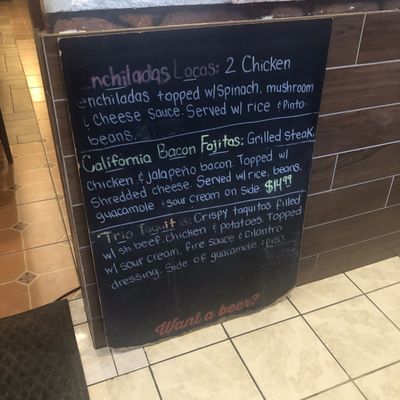 Enchiladas Locas: 2 Chicken
enchiladas topped w/spinach, mushroom
& cheese sauce. Served w/ rice & pinto
beans.
California Bacon Fajitas: Grilled steak
chicken & jalapeño bacon. Topped w/
Shredded cheese. Served w/rice, beans,
guacamole & sour cream on side. $14.99
Trio Taquitos: Crispy taquitos filled
w/ sh. beef, chicken & potatoes. Topped
w/ sour cream, fire sauce & cilantro
dressing. Side of guacamole & pico
Want a beer?